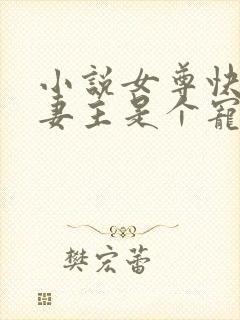 小説女尊快
妻主是个寵
樊宏蕾